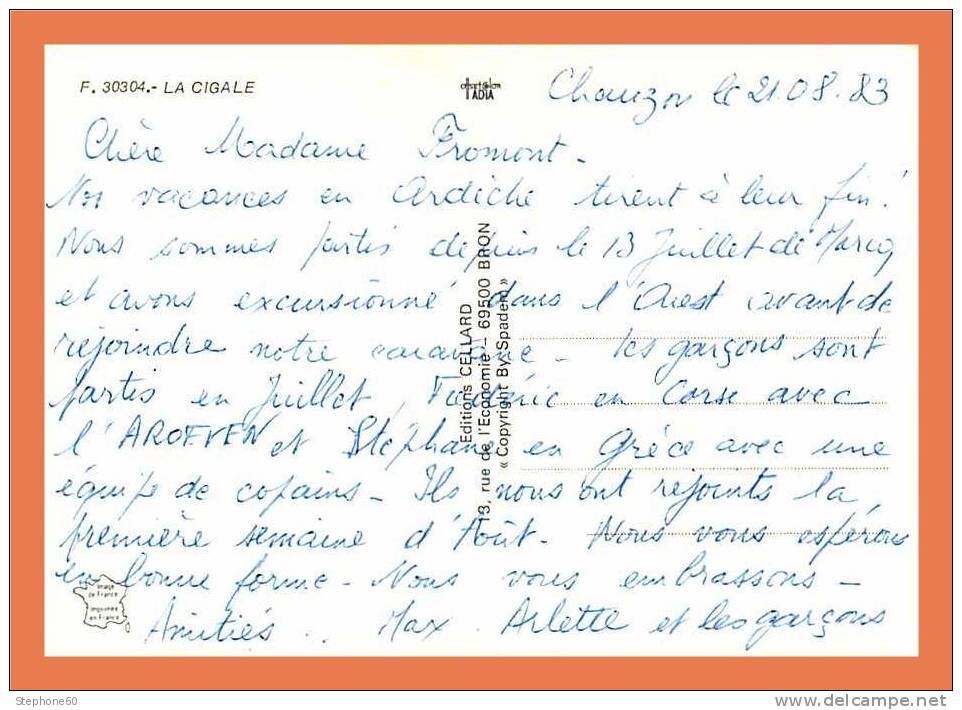 F. 30304.- LA CIGALE
l'ADIA
Chauzon le 21.08.83
Chère Madame Fromont -
Nos vacances en Ardèche tirent à leur fin!
Nous sommes partis depuis le 13 Juillet de Marcq
et avons excursionné dans l'Ouest avant de
rejoindre notre caravane - les garçons sont
partis en Juillet, Frédéric en Corse avec
l'AROEVEN et Stéphane en Grèce avec une
équipe de copains - Ils nous ont rejoints la
première semaine d'Août - Nous vous espérons
en bonne forme - Nous vous embrassons -
Amitiés.. Max Arlette et les garçons
Editions CELLARD
13, rue de l'Economie – 69500 BRON
« Copyright By Spadem »
Image
de France
Imprimée
en France
Stephone60
delcampe.net